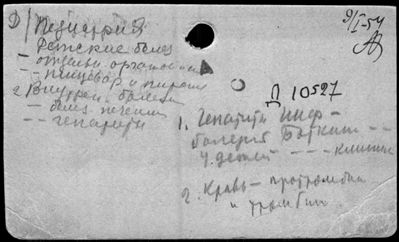 Д/ Педиатрия
Детские болез
- отдельн. органов и
- пищевар и
2. Внутрен. болезн
- болез. печени
- гепатиты
9/I-54
Д 10527
1. Гепатиты инф -
болезнь Боткин - -
у детей - - - клиник
2. Кровь - протромбин
и тромбин